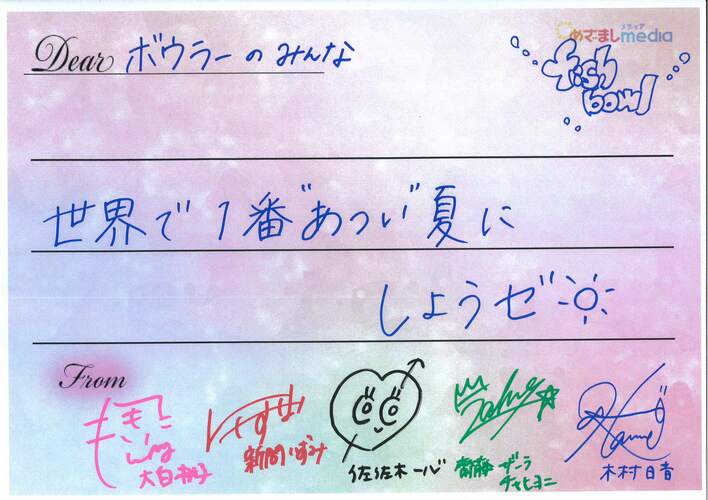 めざましmedia
メディア
Dear ボウラーのみんな
fishbowl
世界で1番"あつい"夏に
しようゼ
From
大白桃子
新間いずみ
佐佐木一心
齋藤ザーラチャヒヨニ
木村日音